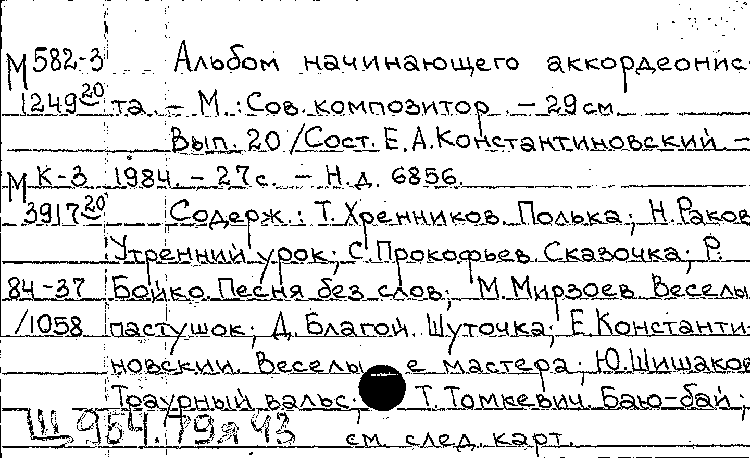 М 582-3 Альбом начинающего аккордеонис-
1249 20 та. – М.: Сов. композитор. – 29 см.
Вып. 20 / Сост. Е. А. Константиновский –
М К-3 1984. – 27 с. – Н. д. 6856.
3917 20 Содерж.: Т. Хренников. Полька; Н. Раков.
Утренний урок; С. Прокофьев. Сказочка; Р.
84-37 Бойко. Песня без слов; М. Мирзоев. Веселы
/1058 пастушок; Д. Благой. Шуточка; Е. Константи-
новский. Веселы е мастера; Ю. Шишаков
Траурный вальс; Т. Томкевич. Баю-бай;
Щ 954.79я 43 см. след. карт.